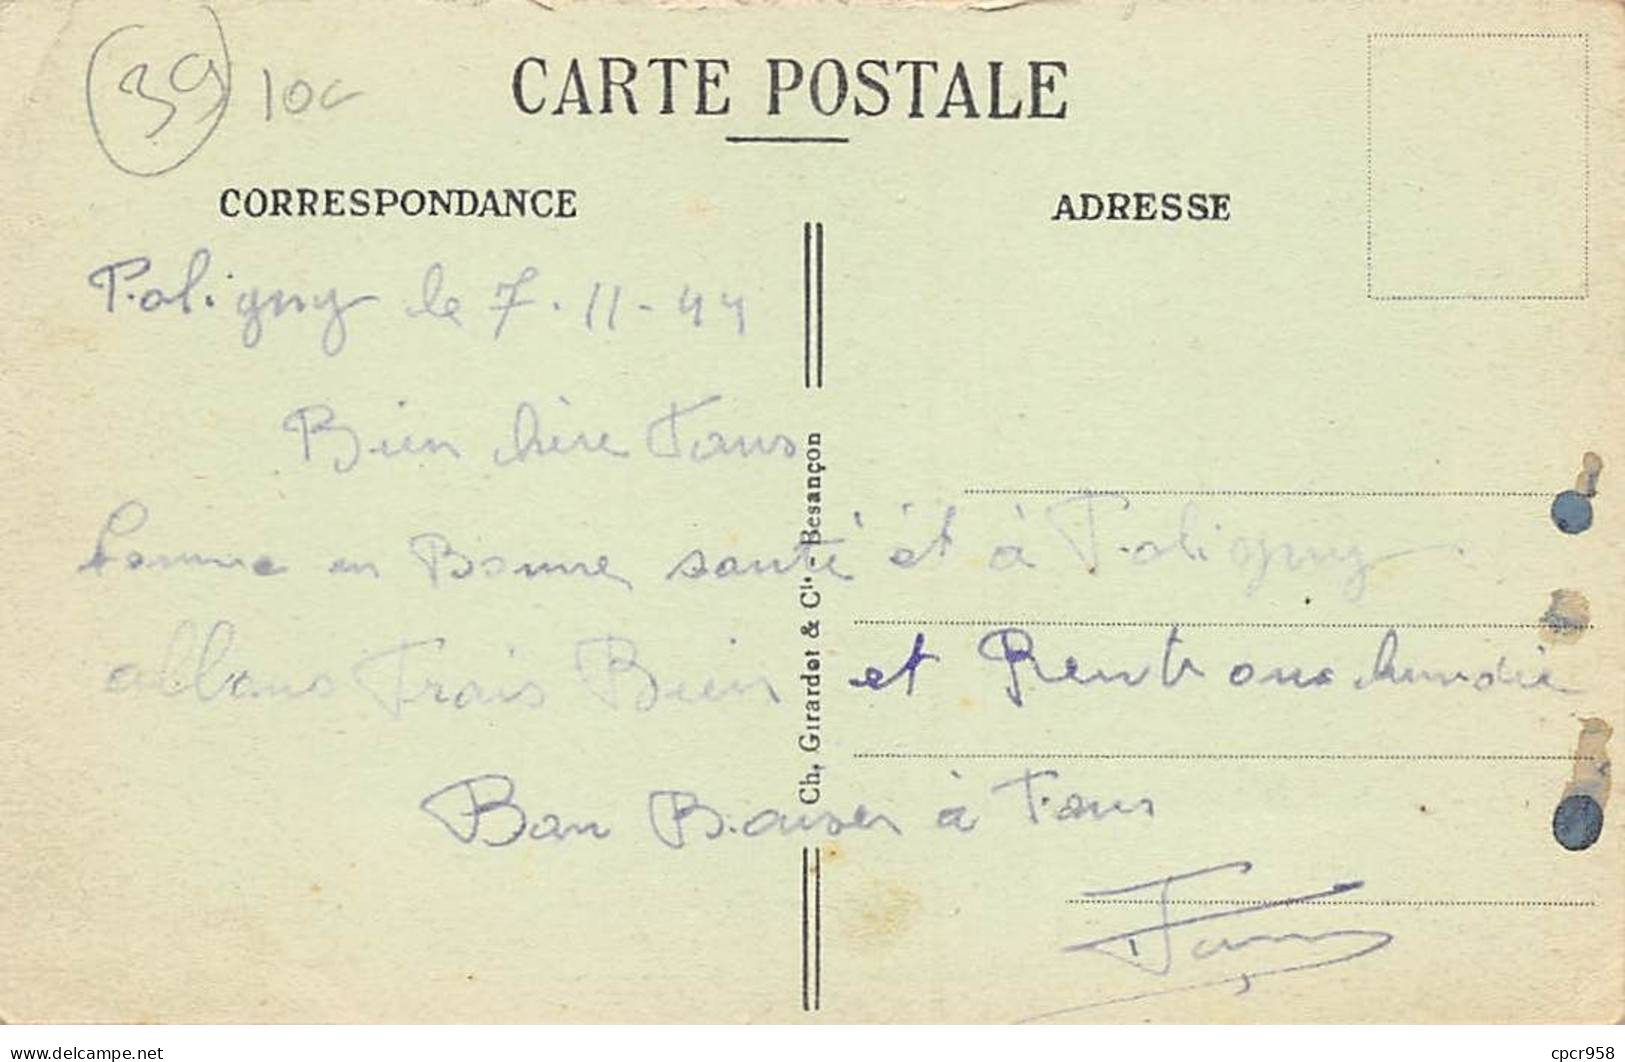 39 10c
CARTE POSTALE
CORRESPONDANCE
ADRESSE
Poligny le 7-11-44
Bien chère Tous
Somme en Bonne santé et à Poligny
allons Trais Bien et Rentrons lundie
Bon Baiser à Tous
Ch. Girardot & Cie - Besançon
cpcr958